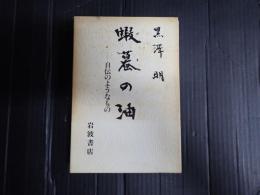 黒澤明
蝦蟇の油
自伝のようなもの
岩波書店